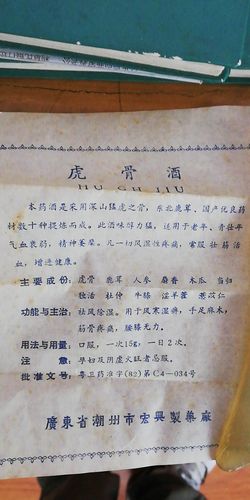 虎骨酒
HU GU JIU
本药酒是采用深山猛虎之骨，东北鹿茸、国产优良药
材数十种提炼而成。此酒味醇力猛，适用于老年、青壮年
气血衰弱，精神萎靡。凡一切风湿性疼痛，常服壮筋活
血，增进健康。
主要成份：虎骨 鹿茸 人参 麝香 木瓜 当归
独活 杜仲 牛膝 淫羊藿 薏苡仁
功能与主治：祛风除湿。用于风寒湿痹，手足麻木，
筋骨疼痛，腰膝无力。
用法与用量：口服，一次15g，一日2次。
注意：孕妇及阴虚火旺者忌服。
批准文号：粤卫药准字(82)第C4—034号
廣東省潮州市宏興製藥廠